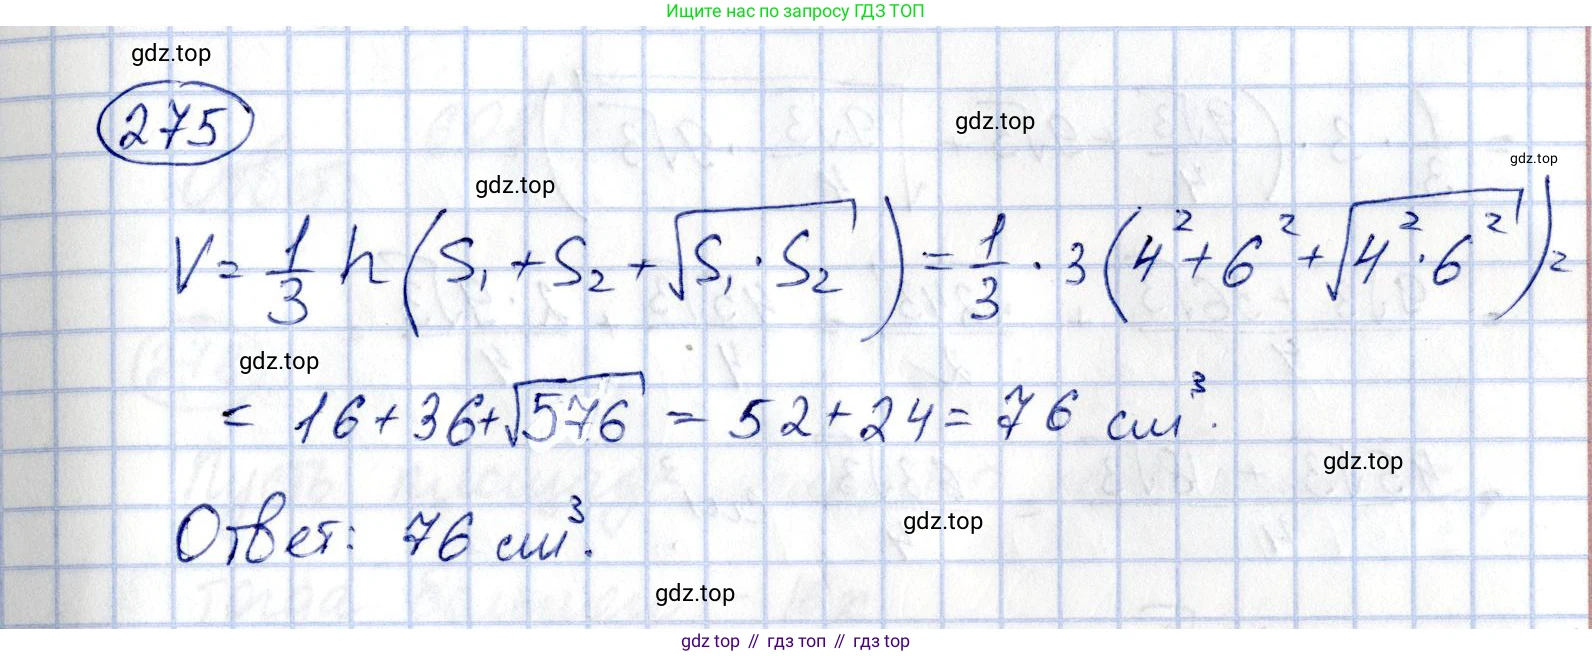 Ищите нас по запросу ГДЗ ТОП
gdz.top
275
gdz.top
gdz.top
gdz.top
V = 1/3 h (S₁ + S₂ + √(S₁ · S₂)) = 1/3 · 3 (4² + 6² + √(4² · 6²)) =
gdz.top
= 16 + 36 + √576 = 52 + 24 = 76 см³.
gdz.top
Ответ: 76 см³.
gdz.top
gdz.top
gdz top // гдз топ // гдз top